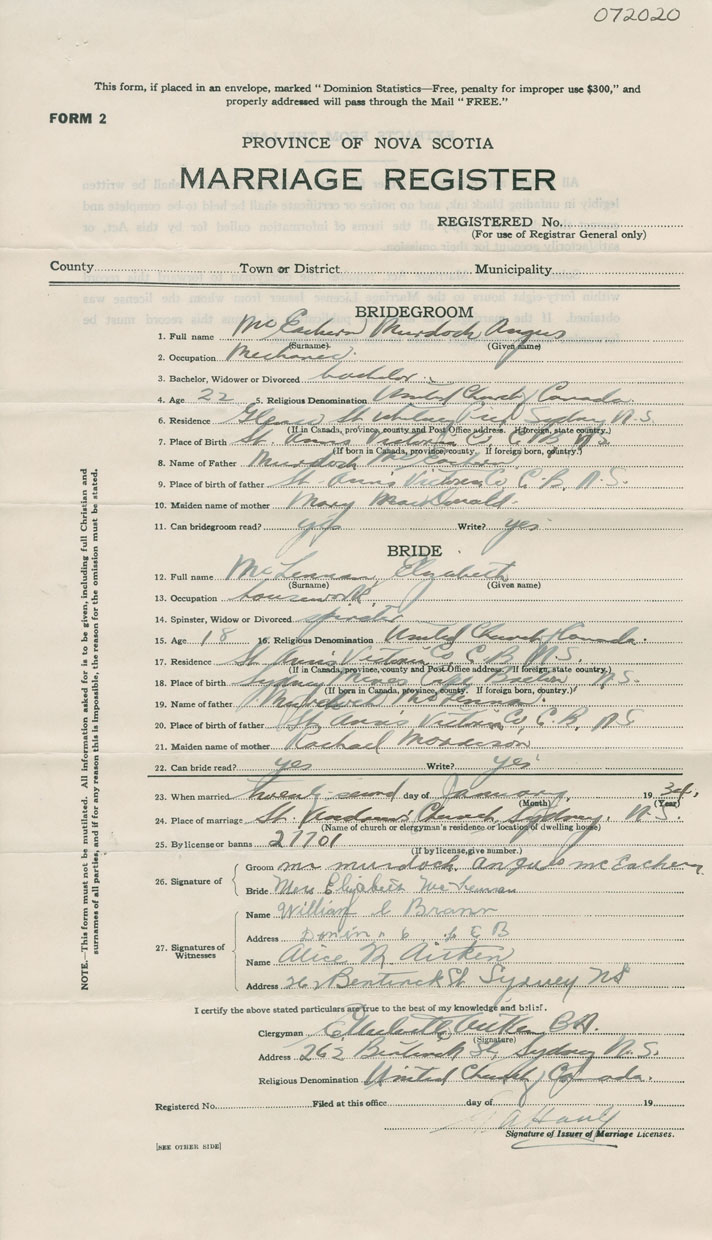 072020
This form, if placed in an envelope, marked "Dominion Statistics—Free, penalty for improper use $300," and
properly addressed will pass through the Mail "FREE."
FORM 2
PROVINCE OF NOVA SCOTIA
MARRIAGE REGISTER
REGISTERED No.
(For use of Registrar General only)
County Town or District Municipality
BRIDEGROOM
1. Full name McEachern Murdoch Angus
(Surname) (Given name)
2. Occupation Mechanic.
3. Bachelor, Widower or Divorced bachelor
4. Age 22 5. Religious Denomination United Church of Canada.
6. Residence St. Sydney N.S.
(If in Canada, province, county and Post Office address. If foreign, state country.)
7. Place of Birth St. Anns Victoria Co. C.B. N.S.
(If born in Canada, province, county. If foreign born, country.)
8. Name of Father Murdoch McEachern
9. Place of birth of father St. Ann's Victoria Co C.B. N.S.
10. Maiden name of mother Mary MacDonald.
11. Can bridegroom read? yes Write? yes
BRIDE
12. Full name McLennan, Elizabeth
(Surname) (Given name)
13. Occupation housework.
14. Spinster, Widow or Divorced spinster
15. Age 18 16. Religious Denomination United Church Canada.
17. Residence St. Ann's Victoria Co C.B. N.S.
(If in Canada, province, county and Post Office address. If foreign, state country.)
18. Place of birth Sydney Mines Cape Breton N.S.
(If born in Canada, province, county. If foreign born, country.)
19. Name of father Murdoch
20. Place of birth of father St. Ann's Victoria Co C.B. N.S
21. Maiden name of mother Rachael Morrison
22. Can bride read? yes Write? yes
23. When married twenty-second day of January, 19 34,
(Month) (Year)
24. Place of marriage St. Church, Sydney, N.S.
(Name of church or clergyman's residence or location of dwelling house)
25. By license or banns 27701
(If by license, give number.)
26. Signature of
Groom mr murdoch angus mcEachern
Bride Miss Elizabeth McLennan
27. Signatures of Witnesses
Name William Brann
Address C B
Name Alice M Aitken
Address 262 Bentinck St Sydney NS
I certify the above stated particulars are true to the best of my knowledge and belief.
Clergyman Aitken B.A.
(Signature)
Address 262 Bentinck St, Sydney N.S.
Religious Denomination United Church of Canada.
Registered No. Filed at this office day of 19
Signature of Issuer of Marriage Licenses.
[SEE OTHER SIDE]
NOTE.—This form must not be mutilated. All information asked for is to be given, including full Christian and
surnames of all parties, and if for any reason this is impossible, the reason for the omission must be stated.